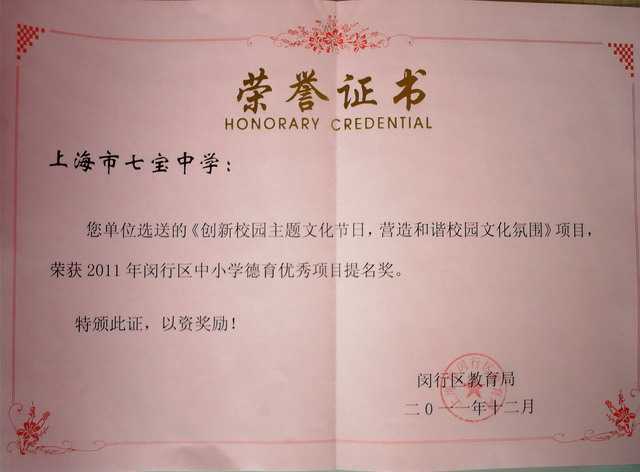 荣誉证书
HONORARY CREDENTIAL
上海市七宝中学：
您单位选送的《创新校园主题文化节日，营造和谐校园文化氛围》项目，
荣获 2011 年闵行区中小学德育优秀项目提名奖。
特颁此证，以资奖励！
闵行区教育局
二0一一年十二月